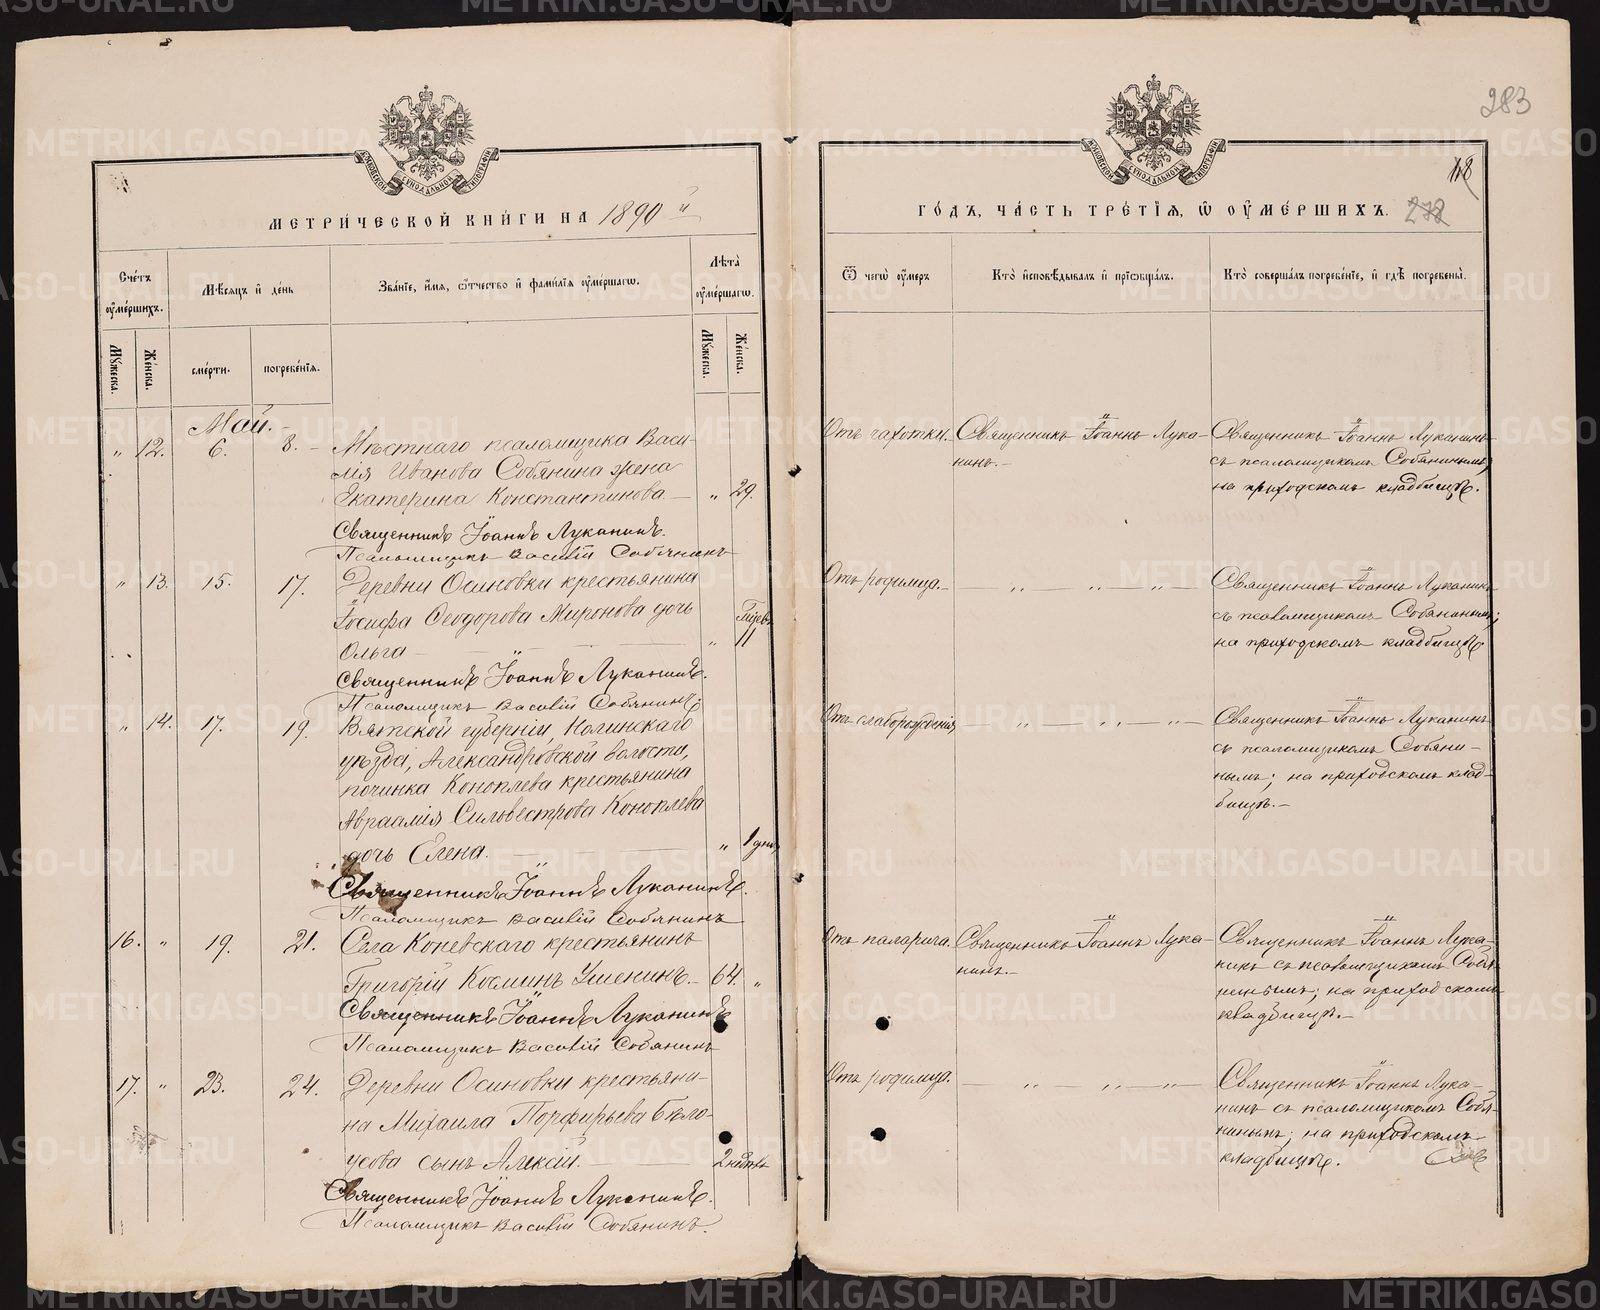 283
118
278
МЕТРИ́ЧЕСКОЙ КНИ́ГИ НА 1890 й
ГО́ДЪ, ЧА́СТЬ ТРЕ́ТІѦ, Ѡ ОУ҆МЕ́РШИХЪ.
Сче́тъ оу҆ме́ршихъ.
Мꙋ́жеска.
Же́нска.
Мѣ́сѧцъ и҆ де́нь
сме́рти.
погребе́нїѧ.
Зва́нїе, и҆́мѧ, ѻ҆́тчество и҆ фами́лїѧ оу҆ме́ршагѡ.
Лѣ́та оу҆ме́ршагѡ.
Мꙋ́жеска.
Же́нска.
Ѿ чегѡ̀ оу҆́меръ
Кто̀ и҆сповѣ́дывалъ и҆ прїѡбща́лъ.
Кто̀ соверша́лъ погребе́нїе, и҆ гдѣ̀ погребены̀.
Май.
" 12. 6. 8. Мѣстнаго псаломщика Васи-
лія Иванова Собянина жена
Екатерина Константинова — " 29.
Священникъ Іоаннъ Луканинъ.
Псаломщикъ Василій Собянинъ
Отъ чахотки.
Священникъ Іоаннъ Лука-
нинъ.—
Священникъ Іоаннъ Луканинъ
съ псаломщикомъ Собянинымъ;
на приходскомъ кладбищѣ.
" 13. 15. 17. Деревни Осиновки крестьянина
Іосифа Ѳеодорова Миронова дочь
Ольга — " 11
Священникъ Іоаннъ Луканинъ.
Псаломщикъ Василій Собянинъ
Отъ родимца.—
— " — " — " —
Священникъ Іоаннъ Луканинъ
съ псаломщикомъ Собянинымъ;
на приходскомъ кладбищѣ.
" 14. 17. 19. Вятской губерніи, Нолинскаго
уѣзда, Александровской волости,
починка Коноплева крестьянина
Авраамія Силовестрова Коноплева
дочь Елена. — " 1 дня
Священникъ Іоаннъ Луканинъ.
Псаломщикъ Василій Собянинъ
Отъ слаборожденія
— " — " — " —
Священникъ Іоаннъ Луканинъ
съ псаломщикомъ Собяни-
нымъ; на приходскомъ клад-
бищѣ.—
16. " 19. 21. Села Коневскаго крестьянинъ
Григорій Косминъ Ушенинъ.— 64. "
Священникъ Іоаннъ Луканинъ
Псаломщикъ Василій Собянинъ
Отъ паралича.
Священникъ Іоаннъ Лука-
нинъ.—
Священникъ Іоаннъ Лука-
нинъ съ псаломщикомъ Собя-
нинымъ; на приходскомъ
кладбищѣ.—
17. " 23. 24. Деревни Осиновки крестьяни-
на Михаила Порфирьева Бѣло-
усова сынъ Алексій. — 2 недѣль
Священникъ Іоаннъ Луканинъ.
Псаломщикъ Василій Собянинъ.
Отъ родимца.
— " — " — " —
Священникъ Іоаннъ Лука-
нинъ съ псаломщикомъ Собя-
нинымъ; на приходскомъ
кладбищѣ.